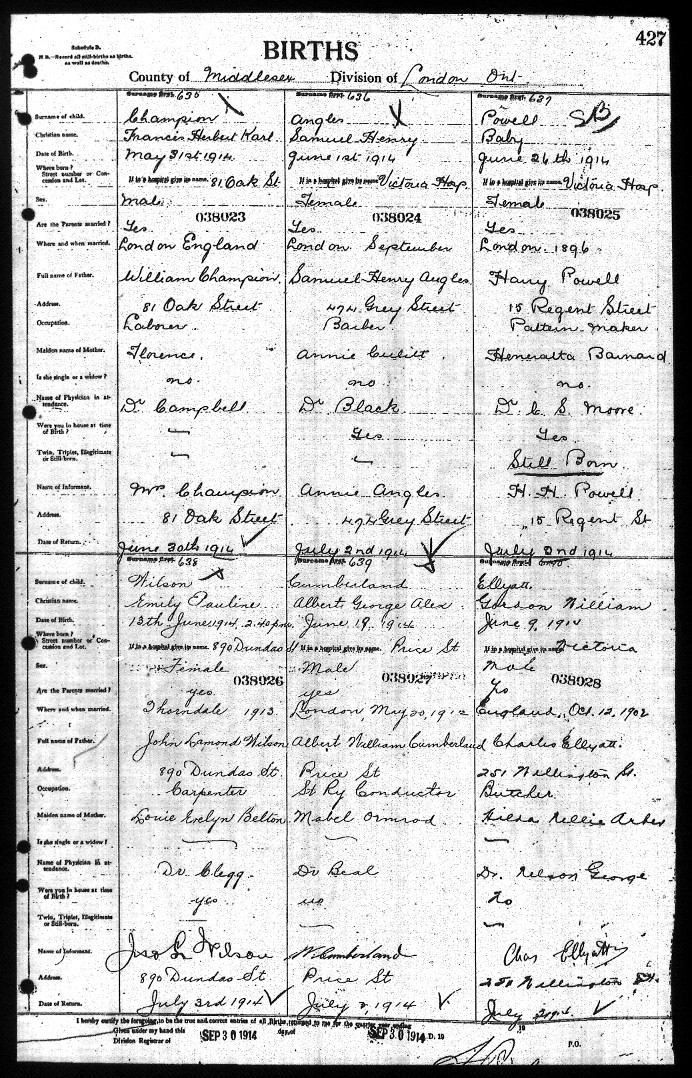 427
Schedule D.
N. B.—Record all still-births as births.
as well as deaths.
BIRTHS
County of Middlesex Division of London Ont
Surname first. 635 Surname first. 636 Surname first. 637
Surname of child. Champion Angles Powell SB
Christian name. Francis Herbert Karl Samuel Henry Baby
Date of Birth. May 31st 1914 June 1st 1914 June 26th 1914
Where born?
Street number or Concession and Lot. If in a hospital give its name. 81 Oak St If in a hospital give its name. Victoria Hosp If in a hospital give its name. Victoria Hosp
Sex. Male Female Female
038023 038024 038025
Are the Parents married? Yes Yes Yes
Where and when married. London England London September London 1896
Full name of Father. William Champion Samuel Henry Angles Harry Powell
Address. 81 Oak Street 474 Grey Street 15 Regent Street
Occupation. Laborer Barber Pattern Maker
Maiden name of Mother. Florence Annie Heneratta Barnard
Is she single or a widow? no no no
Name of Physician in attendance. Dr Campbell Dr Black Dr C S Moore
Were you in house at time of Birth? Yes Yes
Twin, Triplet, Illegitimate or Still-born. Still Born
Name of Informant. Mrs Champion Annie Angles H. H. Powell
Address. 81 Oak Street 474 Grey Street 15 Regent St
Date of Return. June 30th 1914 July 2nd 1914 July 2nd 1914
Surname first. 638 Surname first. 639 Surname first. 640
Surname of child. Wilson Cumberland Ellyatt
Christian name. Emily Pauline Albert George Alex Gordon William
Date of Birth. 13th June 1914, 2.40 pm June 19, 1914 June 9, 1914
Where born?
Street number or Concession and Lot. If in a hospital give its name. 890 Dundas St If in a hospital give its name. Price St If in a hospital give its name. Victoria
Sex. Female Male Male
038026 038027 038028
Are the Parents married? yes yes Yes
Where and when married. Thorndale 1913 London, May 20, 1912 England, Oct. 12, 1902
Full name of Father. John Lamond Wilson Albert William Cumberland Charles Ellyatt
Address. 890 Dundas St. Price St 251 Wellington St.
Occupation. Carpenter St Ry Conductor Butcher
Maiden name of Mother. Louie Evelyn Belton Mabel Ormrod Hilda Nellie
Is she single or a widow?
Name of Physician in attendance. Dr. Clegg Dr Beal Dr. Nelson George
Were you in house at time of Birth? yes no No
Twin, Triplet, Illegitimate or Still-born.
Name of Informant. Jno L Wilson W Cumberland Chas Ellyatt
Address. 890 Dundas St Price St Wellington St.
Date of Return. July 3rd 1914 July 2, 1914 July
I hereby certify the foregoing to be the true and correct entries of all Births returned to me for the quarter year ending 19
Given under my hand this SEP 30 1914 day of SEP 30 1914 A. D. 19
Division Registrar of P.O.